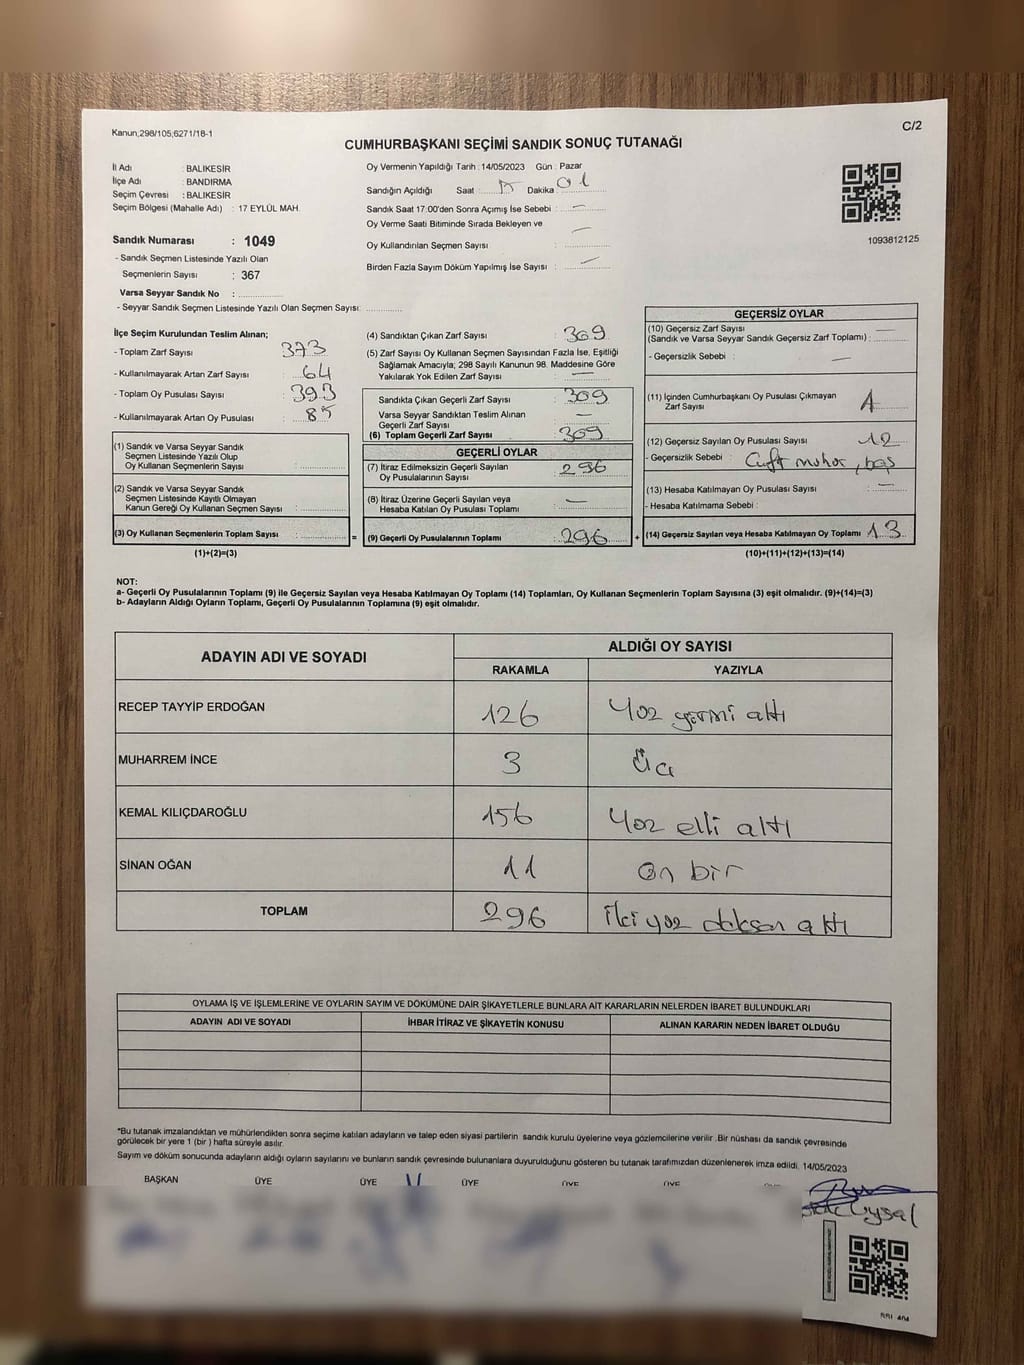 Kanun;298/105;6271/18-1
C/2
CUMHURBAŞKANI SEÇİMİ SANDIK SONUÇ TUTANAĞI
İl Adı : BALIKESİR
İlçe Adı : BANDIRMA
Seçim Çevresi : BALIKESİR
Seçim Bölgesi (Mahalle Adı) : 17 EYLÜL MAH.
Oy Vermenin Yapıldığı Tarih : 14/05/2023 Gün : Pazar
Sandığın Açıldığı Saat : 17 Dakika : 01
Sandık Saat 17:00'den Sonra Açımış İse Sebebi : —
Oy Verme Saati Bitiminde Sırada Bekleyen ve
Oy Kullandırılan Seçmen Sayısı : —
Birden Fazla Sayım Döküm Yapılmış İse Sayısı : —
1093812125
Sandık Numarası : 1049
- Sandık Seçmen Listesinde Yazılı Olan
Seçmenlerin Sayısı : 367
Varsa Seyyar Sandık No :
- Seyyar Sandık Seçmen Listesinde Yazılı Olan Seçmen Sayısı:
İlçe Seçim Kurulundan Teslim Alınan;
- Toplam Zarf Sayısı : 373
- Kullanılmayarak Artan Zarf Sayısı : 64
- Toplam Oy Pusulası Sayısı : 393
- Kullanılmayarak Artan Oy Pusulası : 85
(1) Sandık ve Varsa Seyyar Sandık
Seçmen Listesinde Yazılı Olup
Oy Kullanan Seçmenlerin Sayısı :
(2) Sandık ve Varsa Seyyar Sandık
Seçmen Listesinde Kayıtlı Olmayan
Kanun Gereği Oy Kullanan Seçmen Sayısı :
(3) Oy Kullanan Seçmenlerin Toplam Sayısı : =
(1)+(2)=(3)
(4) Sandıktan Çıkan Zarf Sayısı : 309
(5) Zarf Sayısı Oy Kullanan Seçmen Sayısından Fazla İse, Eşitliği
Sağlamak Amacıyla; 298 Sayılı Kanunun 98. Maddesine Göre
Yakılarak Yok Edilen Zarf Sayısı : —
Sandıkta Çıkan Geçerli Zarf Sayısı : 309
Varsa Seyyar Sandıktan Teslim Alınan
Geçerli Zarf Sayısı : —
(6) Toplam Geçerli Zarf Sayısı : 309
GEÇERLİ OYLAR
(7) İtiraz Edilmeksizin Geçerli Sayılan
Oy Pusulasının Sayısı : 296
(8) İtiraz Üzerine Geçerli Sayılan veya
Hesaba Katılan Oy Pusulası Toplamı : —
(9) Geçerli Oy Pusulalarının Toplamı : 296 +
GEÇERSİZ OYLAR
(10) Geçersiz Zarf Sayısı —
(Sandık ve Varsa Seyyar Sandık Geçersiz Zarf Toplamı) :
- Geçersizlik Sebebi : —
(11) İçinden Cumhurbaşkanı Oy Pusulası Çıkmayan
Zarf Sayısı : 1
(12) Geçersiz Sayılan Oy Pusulası Sayısı : 12
- Geçersizlik Sebebi : Çift mühür, boş
(13) Hesaba Katılmayan Oy Pusulası Sayısı : —
- Hesaba Katılmama Sebebi :
(14) Geçersiz Sayılan veya Hesaba Katılmayan Oy Toplamı : 13
(10)+(11)+(12)+(13)=(14)
NOT:
a- Geçerli Oy Pusulalarının Toplamı (9) ile Geçersiz Sayılan veya Hesaba Katılmayan Oy Toplamı (14) Toplamları, Oy Kullanan Seçmenlerin Toplam Sayısına (3) eşit olmalıdır. (9)+(14)=(3)
b- Adayların Aldığı Oyların Toplamı, Geçerli Oy Pusulalarının Toplamına (9) eşit olmalıdır.
ADAYIN ADI VE SOYADI ALDIĞI OY SAYISI
RAKAMLA YAZIYLA
RECEP TAYYİP ERDOĞAN 126 Yüz yirmi altı
MUHARREM İNCE 3 Üç
KEMAL KILIÇDAROĞLU 156 Yüz elli altı
SİNAN OĞAN 11 On bir
TOPLAM 296 İki yüz doksan altı
OYLAMA İŞ VE İŞLEMLERİNE VE OYLARIN SAYIM VE DÖKÜMÜNE DAİR ŞİKAYETLERLE BUNLARA AİT KARARLARIN NELERDEN İBARET BULUNDUKLARI
ADAYIN ADI VE SOYADI İHBAR İTİRAZ VE ŞİKAYETİN KONUSU ALINAN KARARIN NEDEN İBARET OLDUĞU
*Bu tutanak imzalandıktan ve mühürlendikten sonra seçime katılan adayların ve talep eden siyasi partilerin sandık kurulu üyelerine veya gözlemcilerine verilir .Bir nüshası da sandık çevresinde
görülecek bir yere 1 (bir) hafta süreyle asılır.
Sayım ve döküm sonucunda adayların aldığı oyların sayılarını ve bunların sandık çevresinde bulunanlara duyurulduğunu gösteren bu tutanak tarafımızdan düzenlenerek imza edildi. 14/05/2023
BAŞKAN ÜYE ÜYE ÜYE ÜYE ÜYE
Uysal